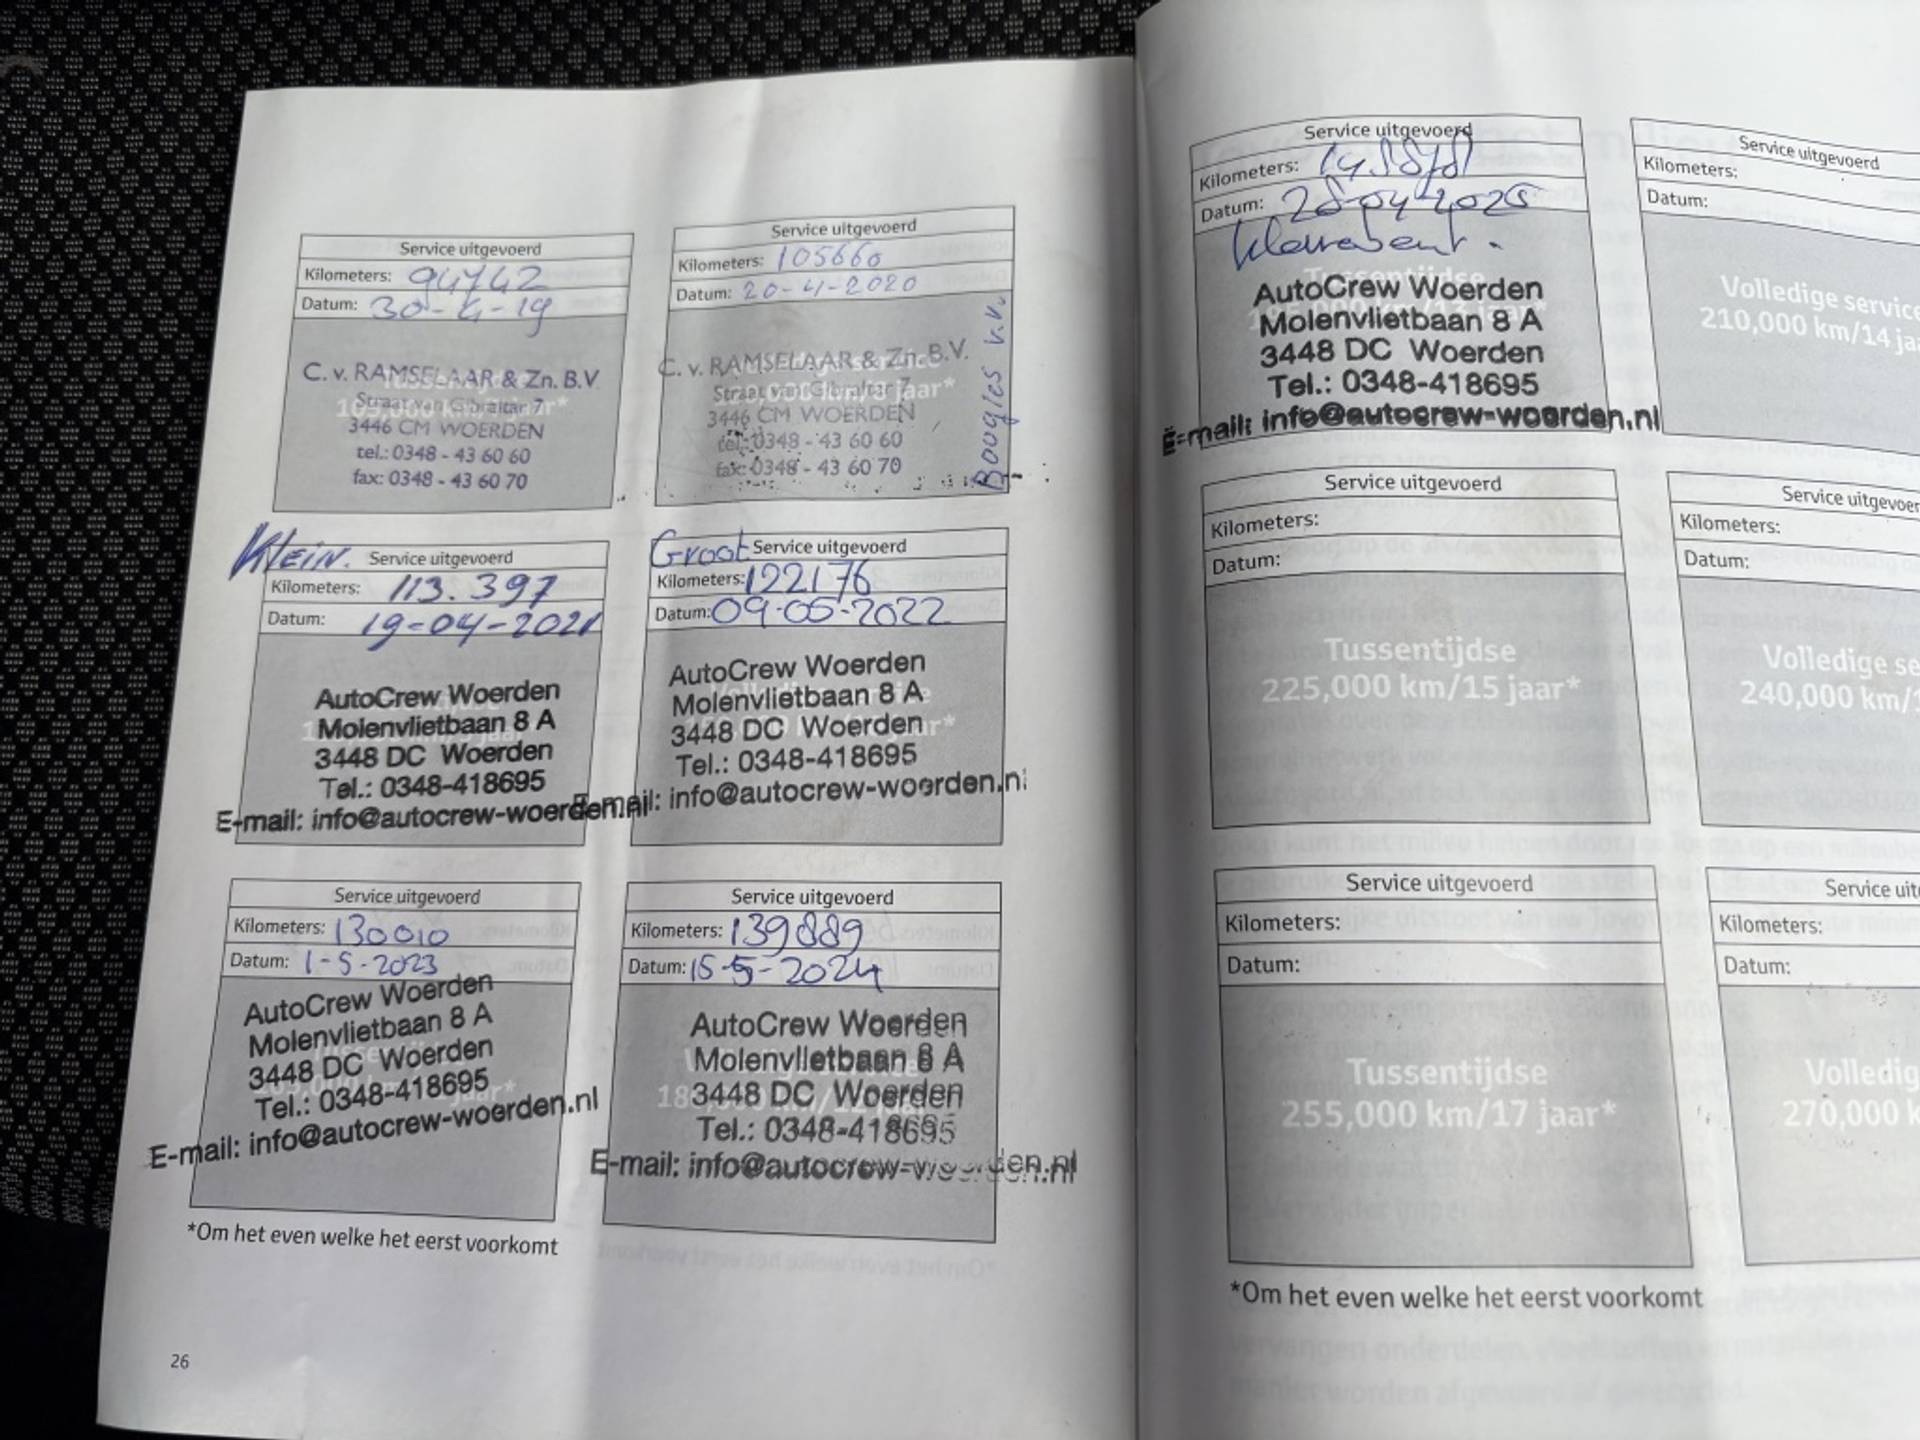 Service uitgevoerd
Kilometers: 94742
Datum: 30-4-19
C. v. RAMSELAAR & Zn. B.V.
Straat van Gibraltar 7
105,000 km/7 jaar*
3446 CM WOERDEN
tel.: 0348 - 43 60 60
fax: 0348 - 43 60 70
Service uitgevoerd
Kilometers: 105660
Datum: 20-4-2020
C. v. RAMSELAAR & Zn. B.V.
Straat van Gibraltar 7
3446 CM WOERDEN
tel.: 0348 - 43 60 60
fax: 0348 - 43 60 70
Boogies v.v.
Klein. Service uitgevoerd
Kilometers: 113.397
Datum: 19-04-2021
AutoCrew Woerden
Molenvlietbaan 8 A
3448 DC Woerden
Tel.: 0348-418695
E-mail: info@autocrew-woerden.nl
Groot Service uitgevoerd
Kilometers: 122176
Datum: 09-05-2022
AutoCrew Woerden
Molenvlietbaan 8 A
3448 DC Woerden
Tel.: 0348-418695
E-mail: info@autocrew-woerden.nl
Service uitgevoerd
Kilometers: 130010
Datum: 1-5-2023
AutoCrew Woerden
Molenvlietbaan 8 A
3448 DC Woerden
Tel.: 0348-418695
E-mail: info@autocrew-woerden.nl
Service uitgevoerd
Kilometers: 139889
Datum: 15-5-2024
AutoCrew Woerden
Molenvlietbaan 8 A
3448 DC Woerden
Tel.: 0348-418695
E-mail: info@autocrew-woerden.nl
*Om het even welke het eerst voorkomt
26
Service uitgevoerd
Kilometers:
Datum: 28-04-2025
Tussentijdse
AutoCrew Woerden
Molenvlietbaan 8 A
3448 DC Woerden
Tel.: 0348-418695
E-mail: info@autocrew-woerden.nl
Service uitgevoerd
Kilometers:
Datum:
Volledige service
210,000 km/14 ja
Service uitgevoerd
Kilometers:
Datum:
Tussentijdse
225,000 km/15 jaar*
Service uitgevoer
Kilometers:
Datum:
Volledige se
240,000 km/1
Service uitgevoerd
Kilometers:
Datum:
Tussentijdse
255,000 km/17 jaar*
Service uit
Kilometers:
Datum:
Volledig
270,000 k
*Om het even welke het eerst voorkomt